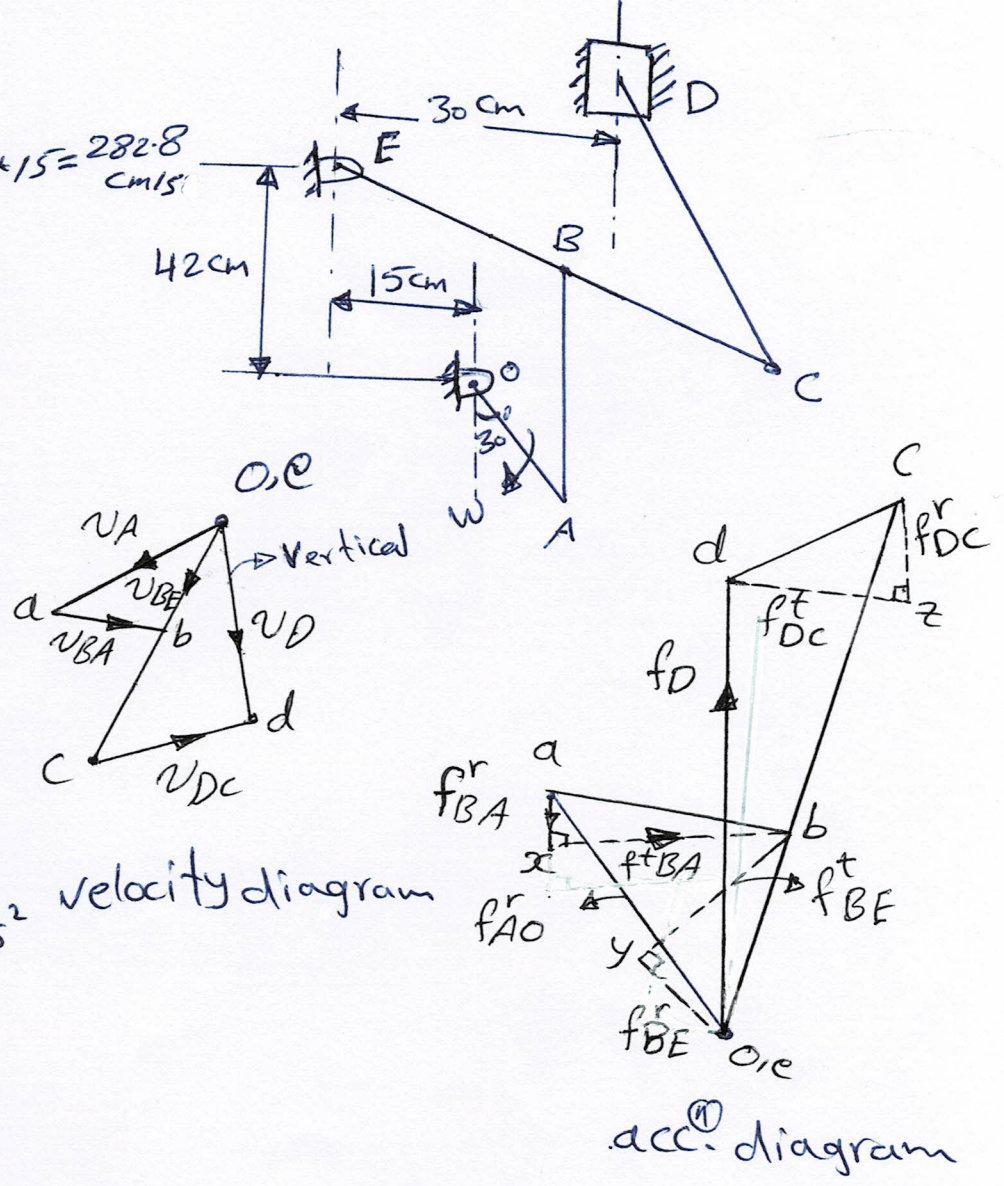 30 cm
D
E
*15 = 282.8
cm/s
B
42cm
15cm
O
C
30°
W
A
O,e
vA
Vertical
vBE
a
b
vBA
vD
d
C
vDC
velocity diagram
s²
C
f^r DC
d
f^t DC
z
fD
a
f^r BA
b
x
f^t BA
f^t BE
f^r AO
y
f^r BE
O,e
acc.ⁿ diagram